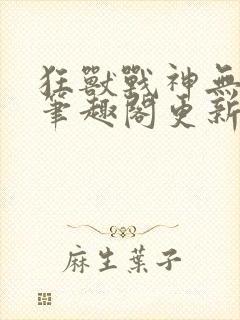 狂獸戰神無
筆趣閣更新
麻生葉子